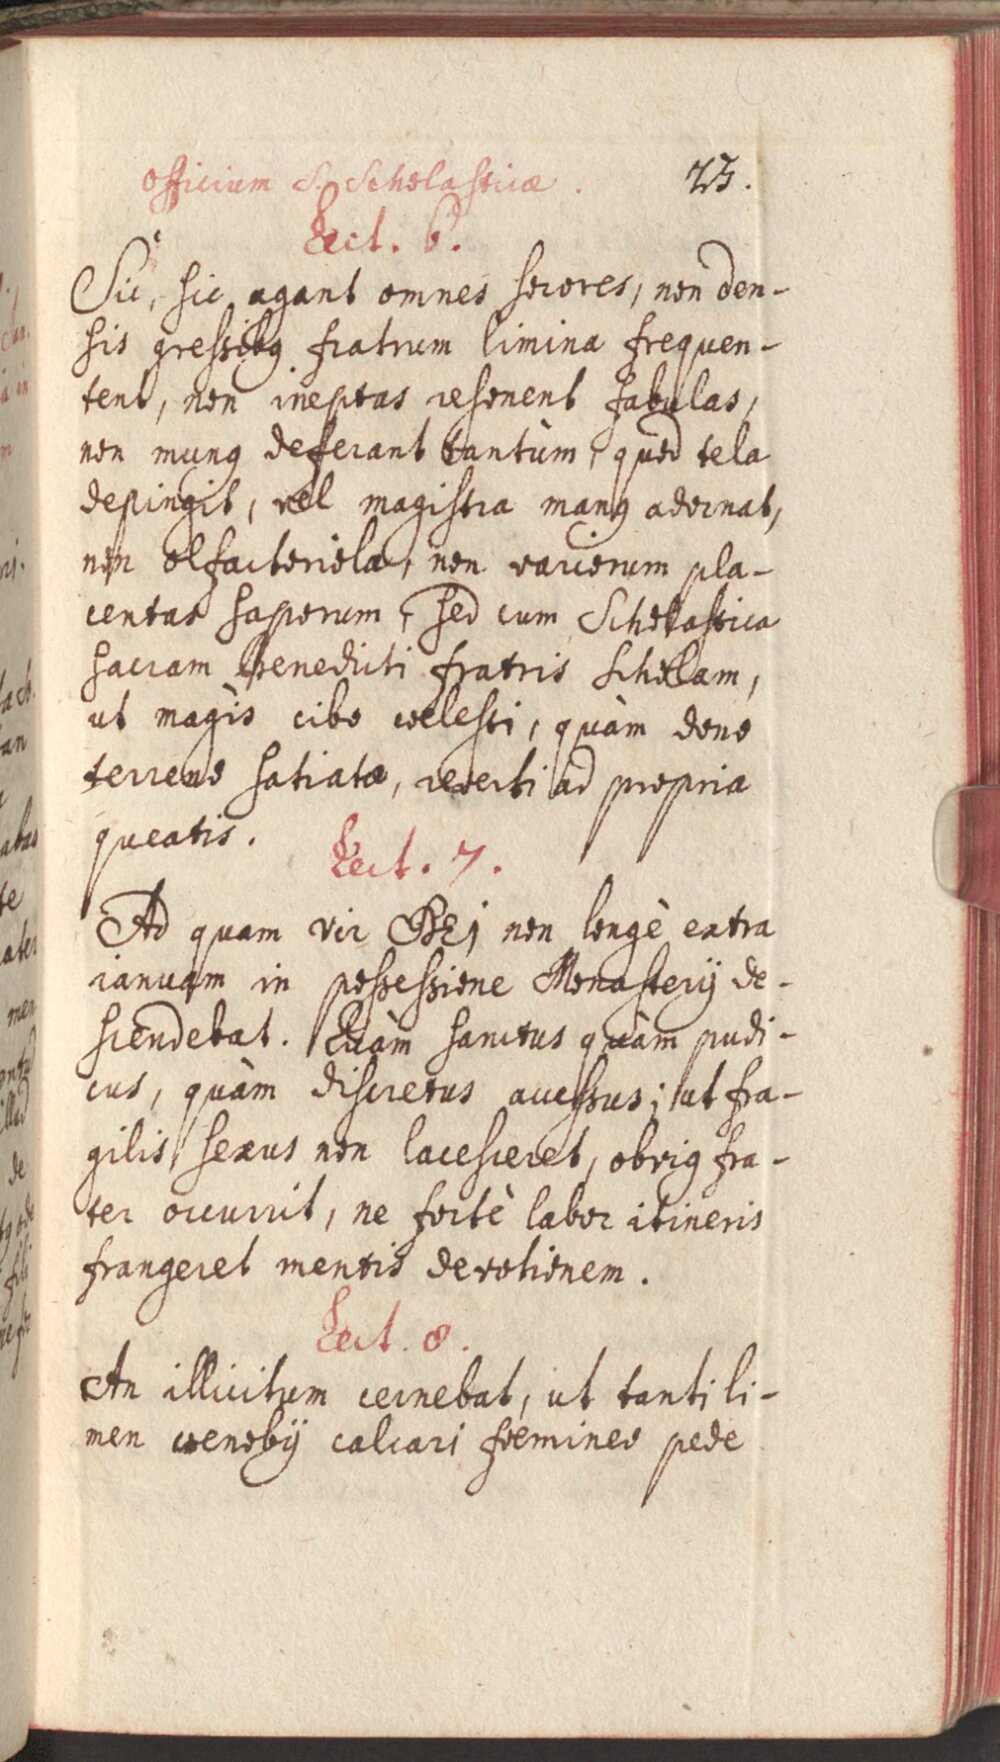 Officium S. Scholasticæ. 23.
Lect. 6.
Sic, sic agant omnes sorores, non den-
sis gressibꝰ fratrum limina frequen-
tent, non ineptas resonent fabulas,
non munꝰ deferant tantùm, quod tela
depingit, vel magistra manꝰ adornat,
non olfactoriola, non variorum pla-
centas saporum, sed cum Scholastica
sacram Benedicti fratris scholam,
ut magìs cibo coelesti, quàm dono
terreno satiatæ, reverti ad propria
queatis.
Lect. 7.
Ad quam vir DEj non longè extra
ianuam in possessione Monasterij de-
scendebat. Quàm sanctus quàm pudi-
cus, quàm discretus accessus; ut fra-
gilis sexus non lacesceret, obvig fra-
ter occurrit, ne fortè labor itineris
frangeret mentis devotionem.
Lect. 8.
An illicitum cernebat, ut tanti li-
men coenobij calcari foemineo pede